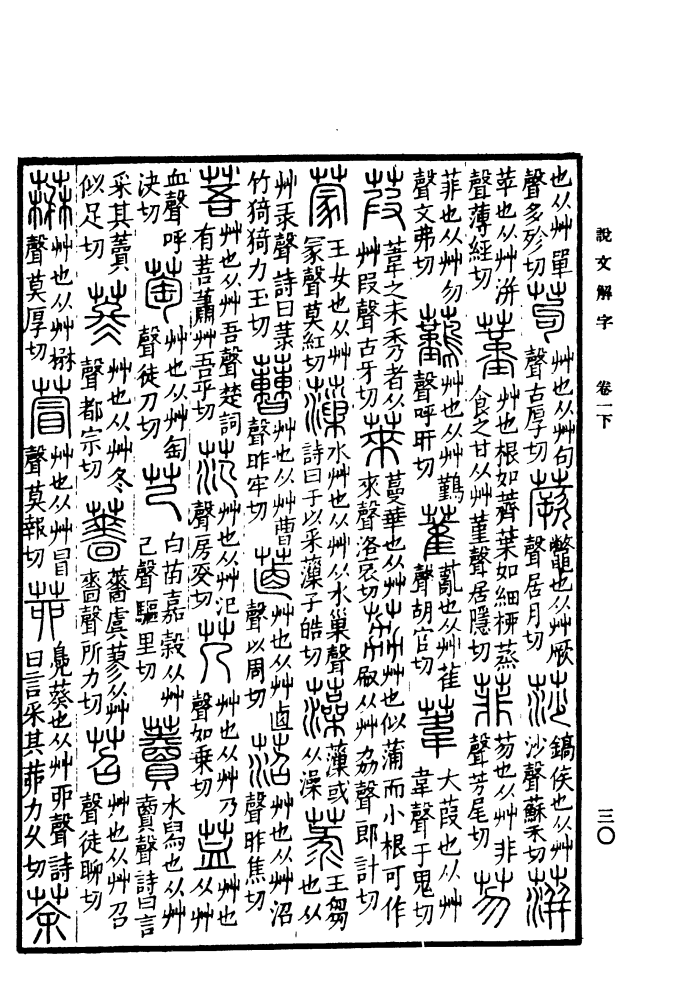 說文解字　卷一下
三〇
也从艸單聲多殄切苟艸也从艸句聲古厚切蕨鼈也从艸厥聲居月切莎鎬矦也从艸沙聲蘇禾切蓱
苹也从艸洴聲薄經切菫艸也根如薺葉如細柳蒸食之甘从艸菫聲居隱切菲芴也从艸非聲芳尾切芴
菲也从艸勿聲文弗切虉艸也从艸鷬聲呼旰切萑薍也从艸萑聲胡官切葦大葭也从艸韋聲于鬼切
葭葦之未秀者从艸叚聲古牙切萊蔓華也从艸來聲洛哀切荔艸也似蒲而小根可作㕞从艸劦聲郎計切
蒙王女也从艸冡聲莫紅切薻水艸也从艸从水巢聲詩曰于以采薻子皓切藻薻或从澡菉王芻也从
艸彔聲詩曰菉竹猗猗力玉切蓸艸也从艸曹聲昨牢切蓾艸也从艸鹵聲以周切菬艸也从艸沼聲昨焦切
䓊艸也从艸吾聲楚詞有䓊蕭艸吾乎切范艸也从艸氾聲房㚇切艿艸也从艸乃聲如乘切䓝艸也从艸
血聲呼決切萄艸也从艸匋聲徒刀切芑白苗嘉穀从艸己聲驅里切藚水舄也从艸賣聲詩曰言
采其藚似足切苳艸也从艸冬聲都宗切薔薔虞蓼从艸嗇聲所力切苕艸也从艸召聲徒聊切
𦿁艸也从艸楙聲莫厚切萺艸也从艸冒聲莫報切茆鳧葵也从艸丣聲詩曰言采其茆力久切荼